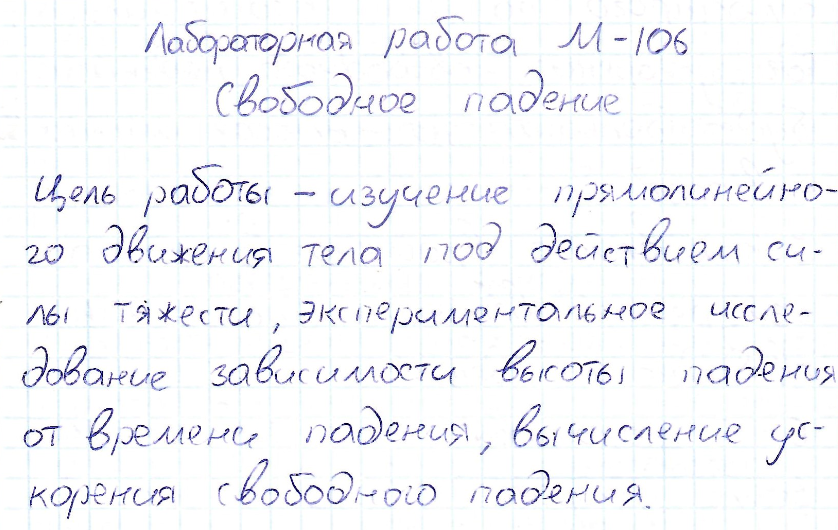 Лабораторная работа М-106
Свободное падение
Цель работы - изучение прямолинейно-
го движения тела под действием си-
лы тяжести, экспериментальное иссле-
дование зависимости высоты падения
от времени падения, вычисление ус-
корения свободного падения.